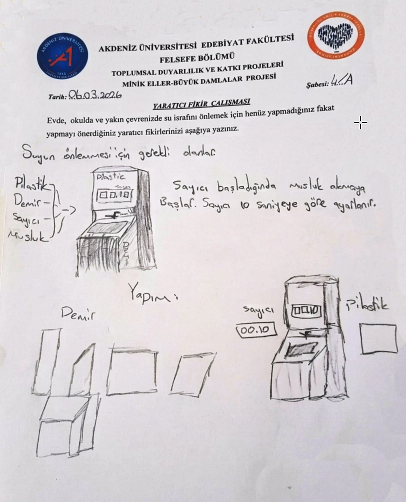 AKDENİZ ÜNİVERSİTESİ EDEBİYAT FAKÜLTESİ
FELSEFE BÖLÜMÜ
TOPLUMSAL DUYARLILIK VE KATKI PROJELERİ
MİNİK ELLER-BÜYÜK DAMLALAR PROJESİ
Tarih: 06.03.2026
Şubesi: 4/A
YARATICI FİKİR ÇALIŞMASI
Evde, okulda ve yakın çevrenizde su israfını önlemek için henüz yapmadığınız fakat
yapmayı önerdiğiniz yaratıcı fikirlerinizi aşağıya yazınız.
Suyun önlenmesi için gerekli olanlar
Plastik
Demir
Sayıcı
Musluk
Plastic
00.10
Demir
Sayıcı başladığında musluk akmaya
Başlar. Sayıcı 10 saniyeye göre ayarlanır.
Yapım:
Demir
sayıcı
00.10
00.10
Pilastik